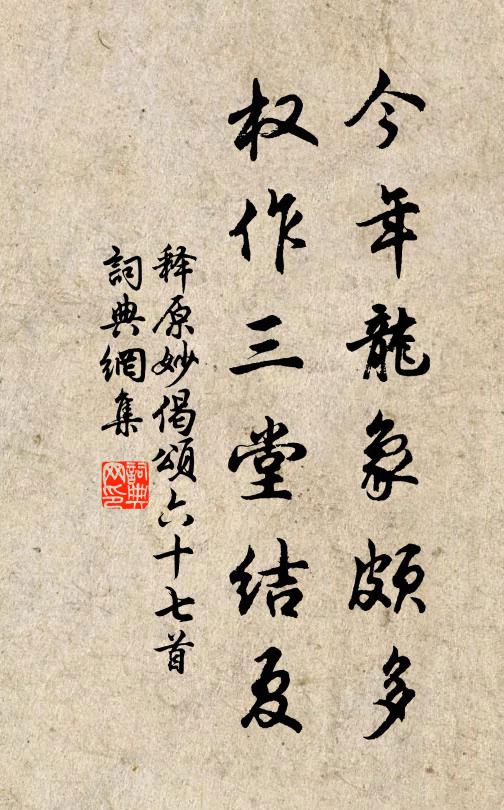 今年龍象頗多
权作三堂結夏
释原妙偈頌六十七首
詞典網集
詞典网印